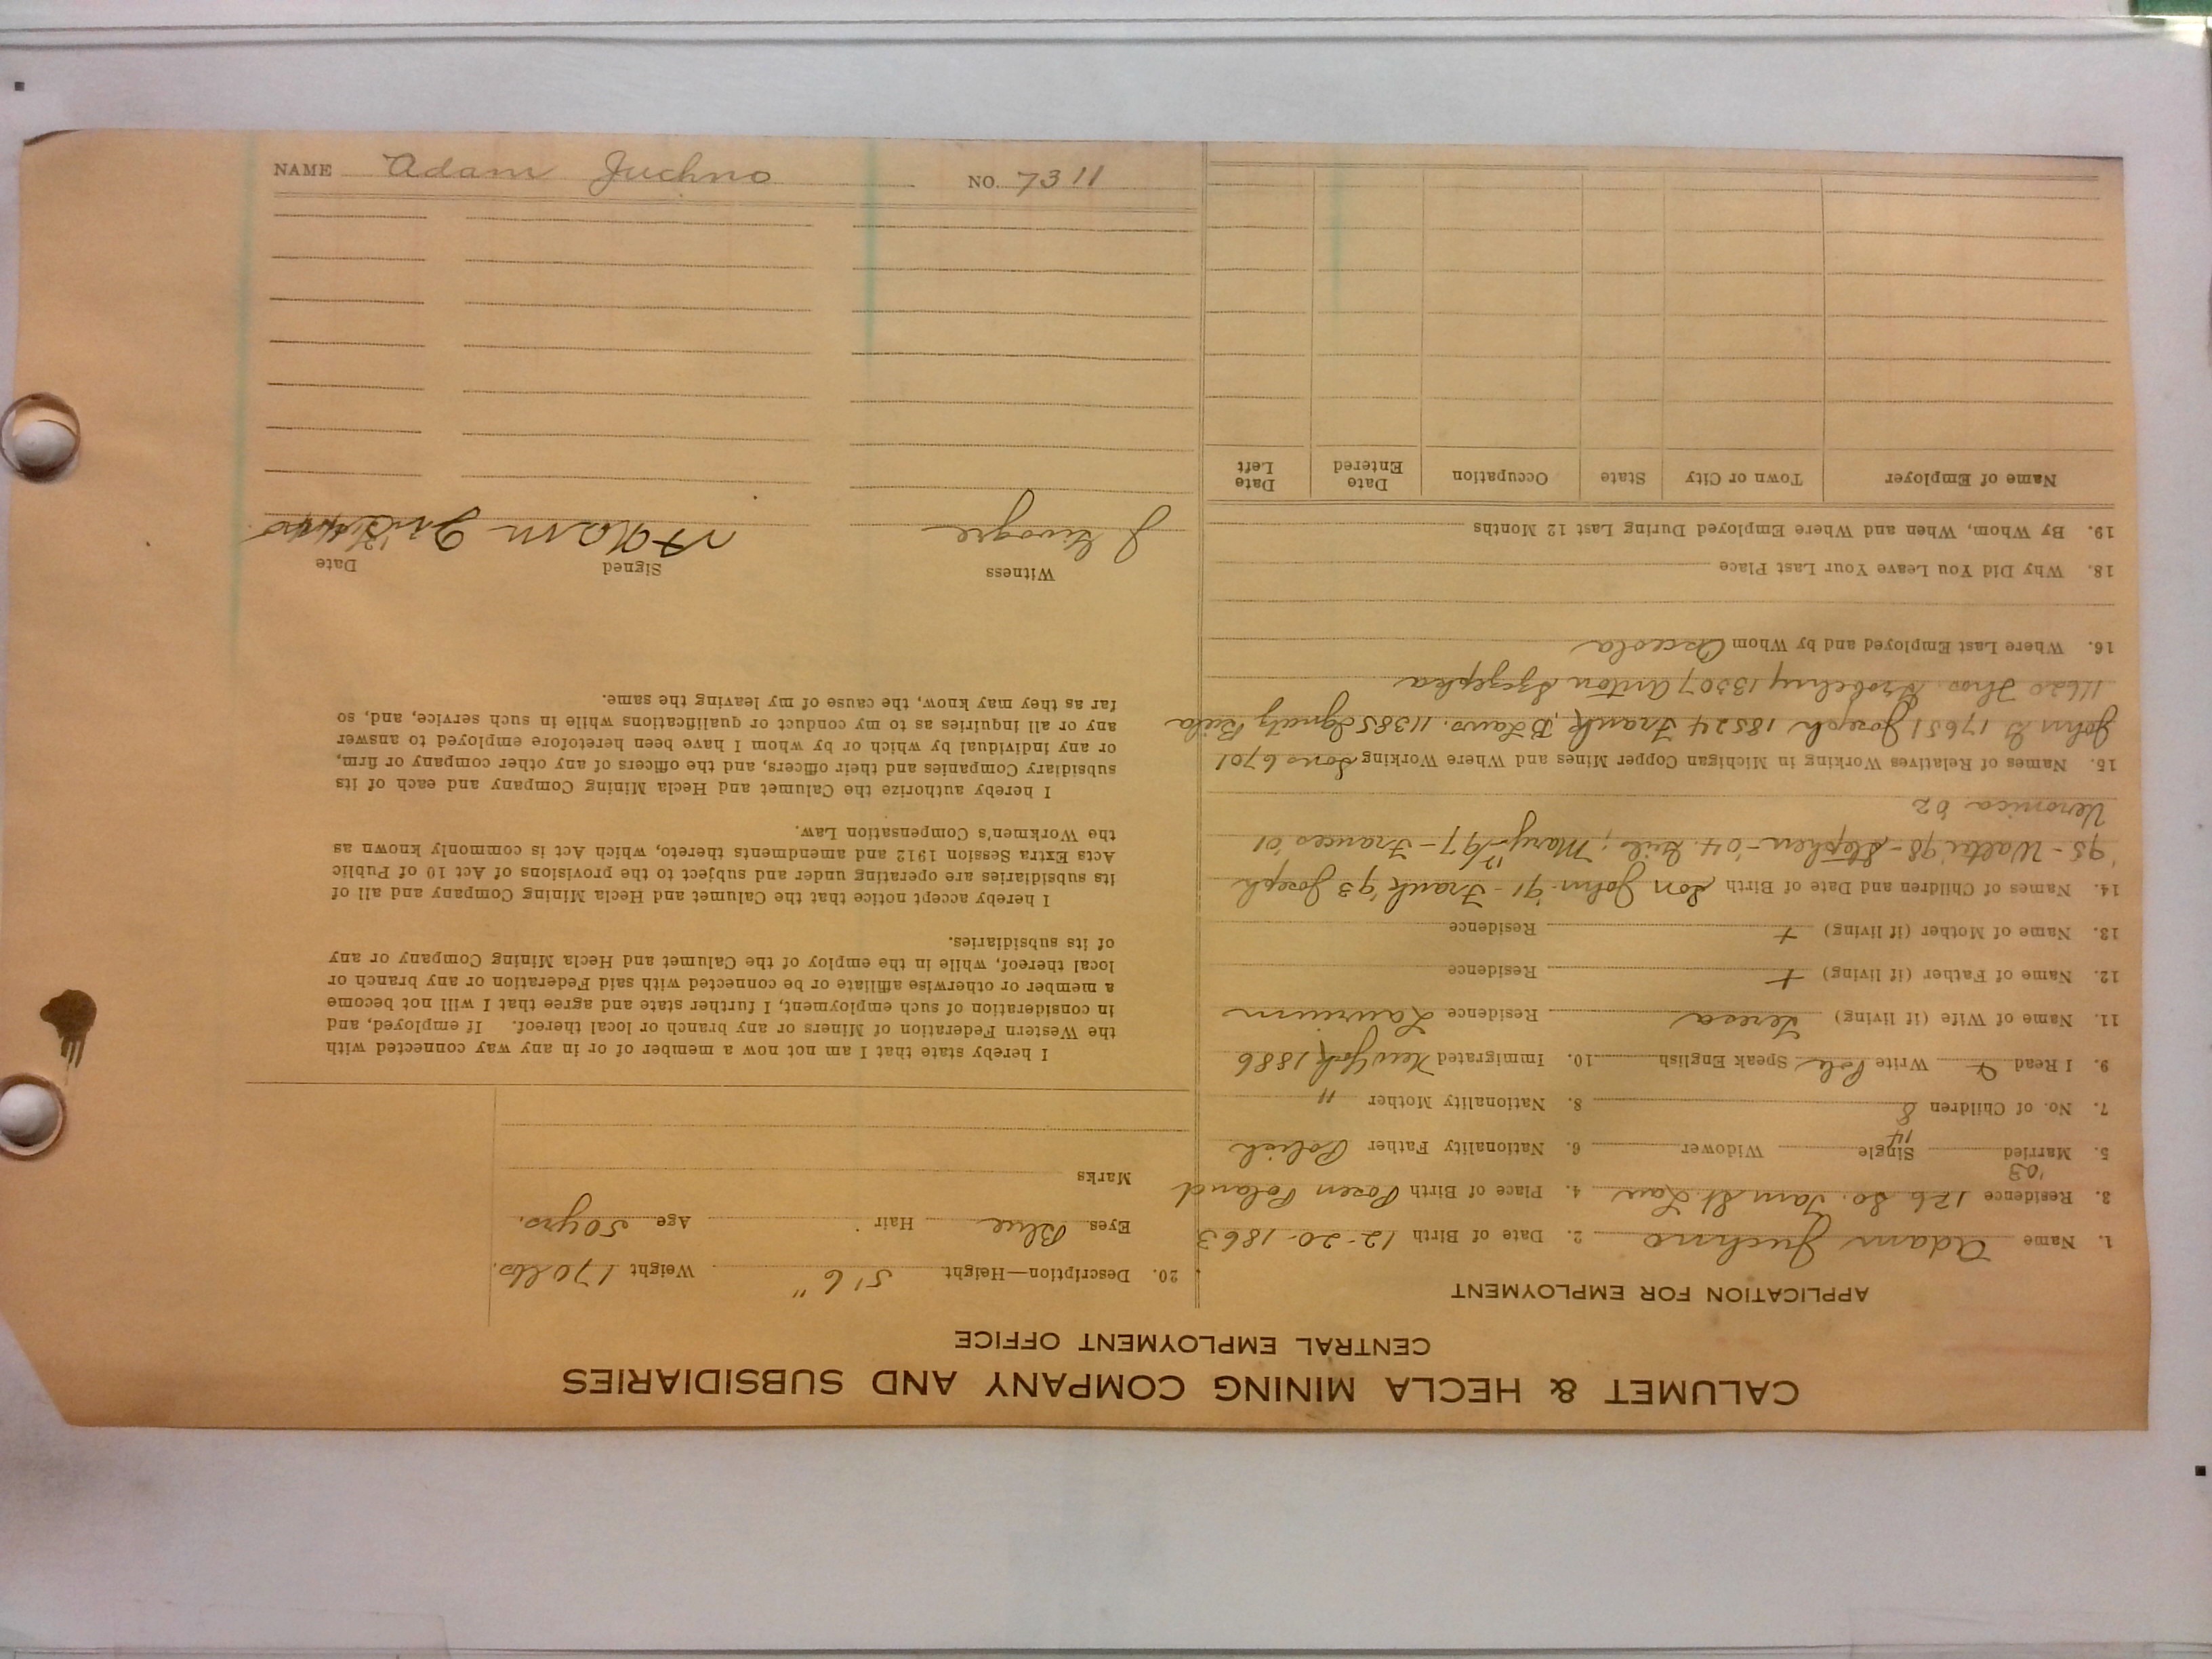 CALUMET & HECLA MINING COMPANY AND SUBSIDIARIES
CENTRAL EMPLOYMENT OFFICE
APPLICATION FOR EMPLOYMENT
1. Name Adam Juchno 2. Date of Birth 12-20-1863
3. Residence 126 So. Tam St Lau 4. Place of Birth Posen Poland
'03
5. Married Single 14 Widower 6. Nationality Father Polish
7. No. of Children 8 8. Nationality Mother "
9. I Read & Write Pole Speak English 10. Immigrated New York 1886
11. Name of Wife (if living) Teresa Residence Laurium
12. Name of Father (if living) + Residence
13. Name of Mother (if living) + Residence
14. Names of Children and Date of Birth Son John-'91-Frank '93 Joseph
'95-Walter '98-Stephen-'04. Girls; Mary-'97-Frances '01
Veronica '02
15. Names of Relatives Working in Michigan Copper Mines and Where Working Sons 6701
John 17651 Joseph 18524 Frank, B Laws. 11385 Ignatz
11620 Thos. 13307 Anton
16. Where Last Employed and by Whom Osceola
18. Why Did You Leave Your Last Place
19. By Whom, When and Where Employed During Last 12 Months
Name of Employer Town or City State Occupation Date Entered Date Left
20. Description—Height 5'6" Weight 170 lbs.
Eyes Blue Hair Age 50 yrs.
Marks
I hereby state that I am not now a member of or in any way connected with
the Western Federation of Miners or any branch or local thereof. If employed, and
in consideration of such employment, I further state and agree that I will not become
a member or otherwise affiliate or be connected with said Federation or any branch or
local thereof, while in the employ of the Calumet and Hecla Mining Company or any
of its subsidiaries.
I hereby accept notice that the Calumet and Hecla Mining Company and all of
its subsidiaries are operating under and subject to the provisions of Act 10 of Public
Acts Extra Session 1912 and amendments thereto, which Act is commonly known as
the Workmen's Compensation Law.
I hereby authorize the Calumet and Hecla Mining Company and each of its
subsidiary Companies and their officers, and the officers of any other company or firm,
or any individual by which or by whom I have been heretofore employed to answer
any or all inquiries as to my conduct or qualifications while in such service, and, so
far as they may know, the cause of my leaving the same.
Witness Signed Date
Adam
NAME Adam Juchno NO. 7311